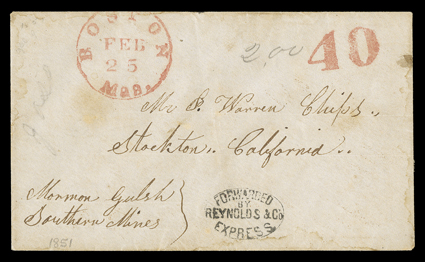 BOSTON
FEB
25
Mass.
2,00
40
Mr S. Warren Chips,
Stockton, California,
Mormon Gulsh
Southern Mines
FORWARDED
BY
REYNOLDS & Co
EXPRESS
1851